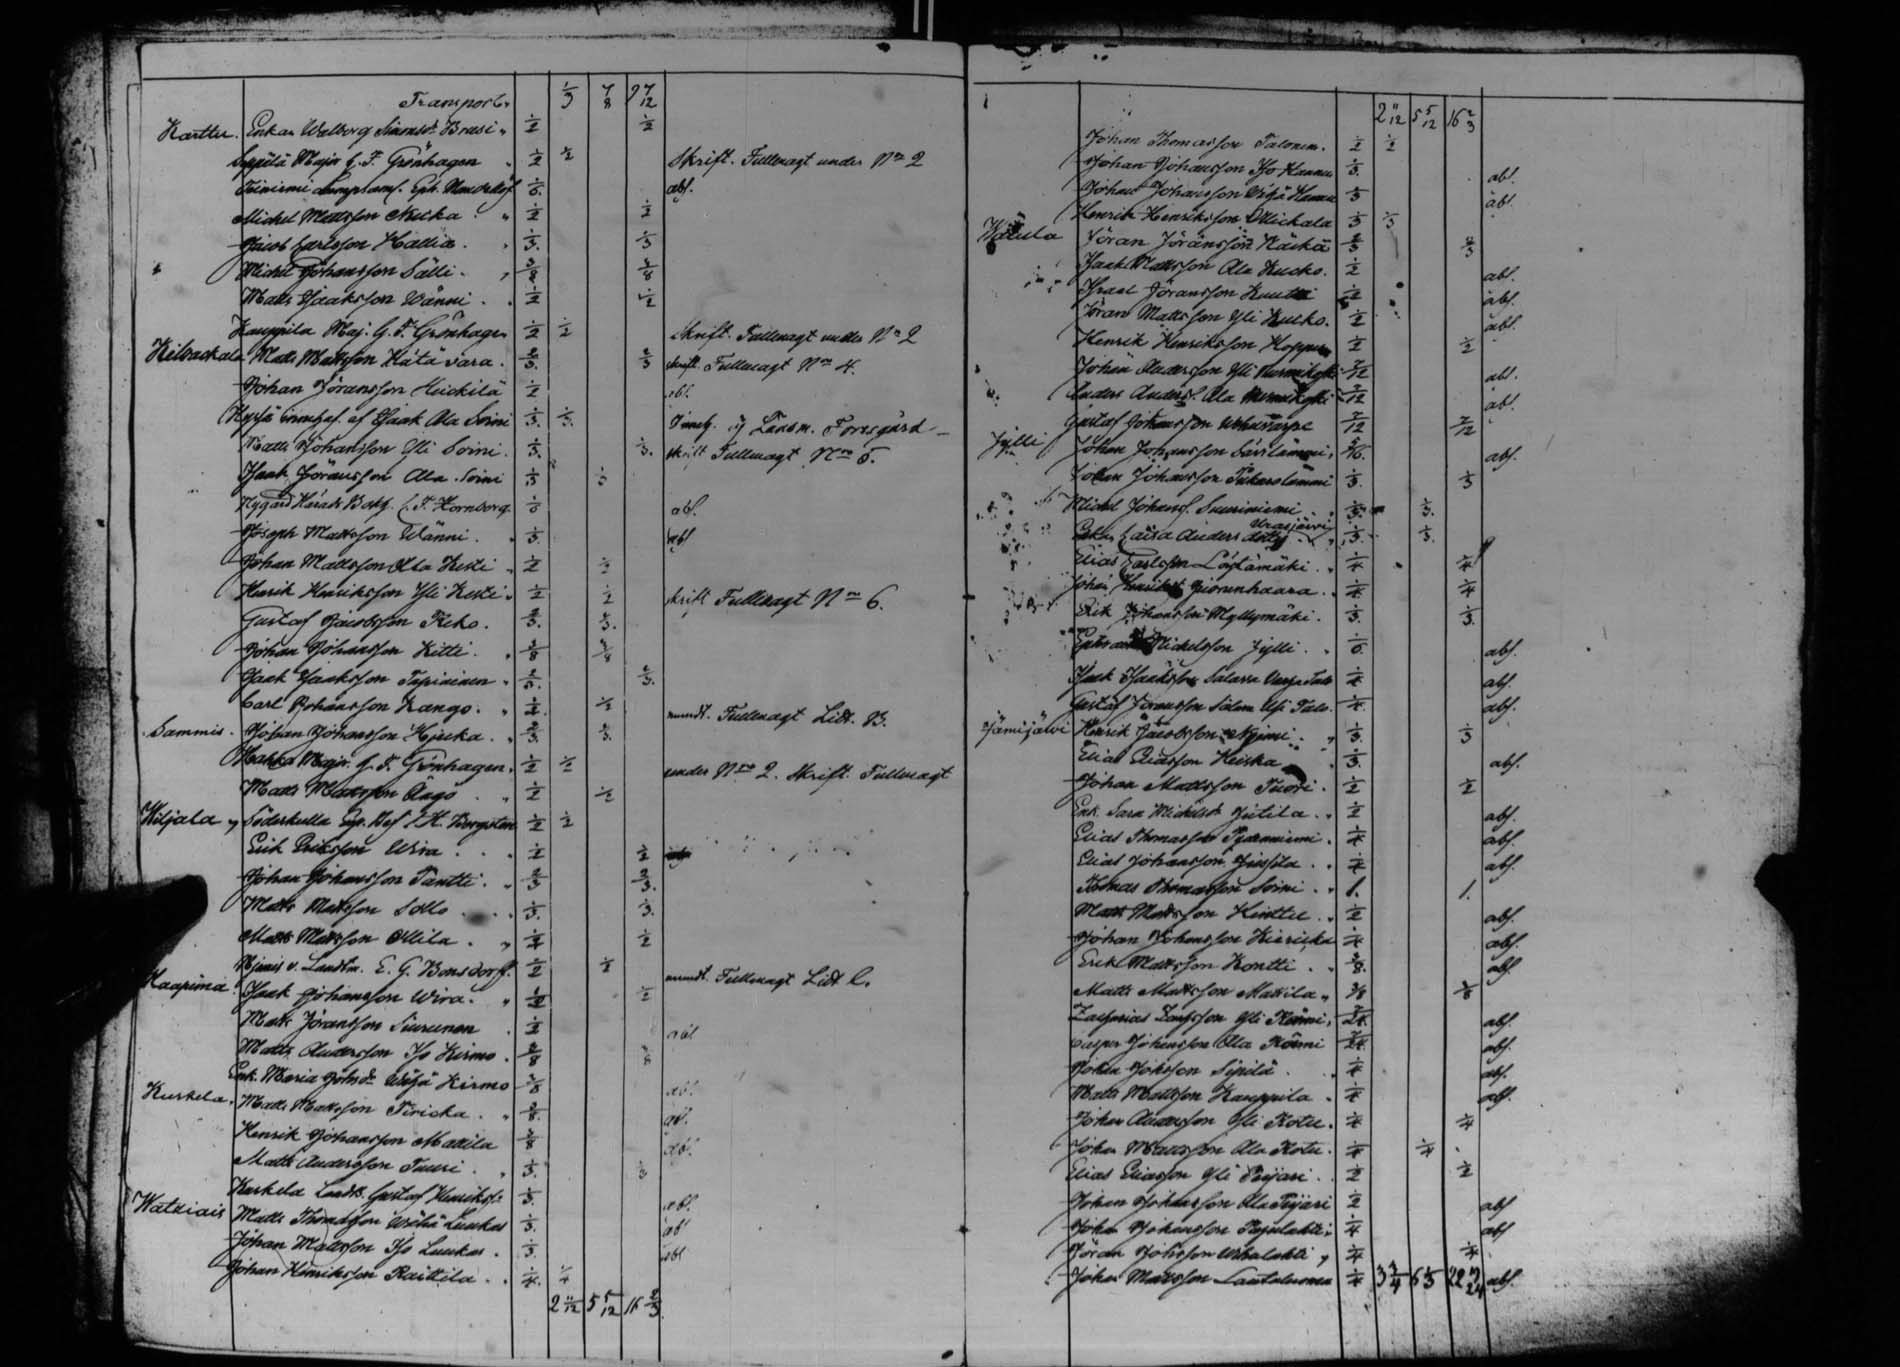 Transport 1/3 7/8 9 7/12
Karttu. Enkan Walborg Simonsdr Brusi 1/2 1/2
Seppälä Major G. F. Grönhagen 1/2 1/2 Skrift. Fullmagt under No 2
abs.
Michel Mattsson Nucka 1/2 1/2
Jacob Carlsson Hallia 1/3. 1/3
Michel Johansson Sälli 3/8 3/8
Matts Isaaksson Wänni 1/2 1/2
Kauppila Maj. G. F. Grönhagen 1/2 1/2 Skrift. Fullmagt under No 2
Kilvackala Matts Mattsson Kätävara 2/3. 2/3 skrift. Fullmagt No 4.
Johan Jöransson Heickilä 1/2 abs.
af Isaak Ala Soini 1/3. 1/3.
Matts Johansson Yli Soini 1/3. 1/3. skrift Fullmagt No 5.
Isaak Jöransson Ala Soini 1/3 1/3
Nygård Härads Bokh. C. F. Hornborg abs.
Joseph Mattsson Wänni 1/3. abs
Johan Mattsson Ala Kesti 1/2 1/2
Henrik Henriksson Yli Kesti 1/2 1/2 skrift Fullmagt No 6.
Gustaf Jacobsson Keko. 2/3. 2/3.
Johan Johansson Kitti 3/8 3/8
Isaak Isaaksson Tapiainen 2/3. 2/3.
Carl Johansson Kango. 1/2 1/2 mundt. Fullmagt Litt. B.
Sammis. Johan Johansson Hjucka. 2/3. 2/3.
Hakka Major G. F. Grönhagen 1/2 1/2 under No 2. Skrift. Fullmagt
Matts Mattsson Äijö 1/2 1/2
Kiljala Söderkulla 1/2 1/2
Erik Eriksson Wira 1/2 1/2
Johan Johansson Tantti 2/3 2/3.
Matts Mattsson Sollo 1/3. 1/3.
Matts Mattsson Ollila 1/2 1/2
Njimis v. Landtm. E. G. Bonsdorff. 1/2 1/2 mundt. Fullmagt Litt C.
Kaapima Isaak Johansson Wira. 1/2 1/2
Matts Jöransson Siurunen 1/2 abs.
Matts Andersson Iso Kirmo 3/8 3/8
Enk. Maria Johsdr Wähä Kirmo 3/8 abs.
Kurkela. Matts Mattsson Tiricka 3/8. abs.
Henrik Johansson Mattila 3/8 abs.
Matts Andersson Tuuri 1/3. 1/3
Kurkela Gustaf Henrikss. 1/3. abs.
Watriais Matts Thomasson Wähä Luukas 1/3. abs
Johan Mattsson Iso Luukas. 1/3. abs
Johan Henriksson Raittila 1/4. 1/4
2 11/12 5 5/12 16 2/3.
2 11/12 5 5/12 16 2/3
Johan Thomasson Talonen. 1/2 1/2
Johan Johansson Iso Hannu 1/3. abs.
Johan Johansson Wähä Hannu 1/3 abs.
Henrik Henriksson Ollickala 1/3 1/3
Watula Jöran Jöransson Käckä 2/3 2/3
Isaak Mattsson Ala Kucko. 1/2 abs.
Israel Jöransson Kuutti 1/2 abs.
Jöran Mattsson Yli Kucko. 1/2 abs.
Henrik Henriksson Koppu 1/2 1/2
Johan Andersson Yli 7/12 abs.
Anders Anderss. Ala 7/12 abs.
Gustaf Johansson 7/12 7/12
Jylli Johan Johansson abs.
Johan Johansson 1/3. 1/3
Michel Johanss. Suuriniemi 1/3. 1/3.
Enkan Caisa Andersdotter 1/3. 1/3.
Elias Carlsson Löytämäki 1/4 1/4
Johan 1/4 1/4
Erik Johansson Myllymäki. 1/3. 1/3.
Michelsson Jylli abs.
Isaak Isaaksson 1/4 abs.
Gustaf Jöransson 1/4. abs.
Jämijärvi Henrik Jacobsson Njimi 1/3. 1/3
Elias Eliasson Heiska 1/3. abs.
Johan Mattsson Tuori 1/2 1/2
Enk. Sara Michelsdr Jutila 1/2 abs.
Elias Thomasson Pyäranniemi 1/4 abs.
Elias Johansson Jussila 1/4 abs.
Thomas Thomasson Soini 1. 1.
Matts Mattsson Kinttu 1/2 abs.
Johan Johansson 1/4 abs.
Erik Mattsson Kontti 3/8. abs
Matts Mattsson Mattila 3/8 3/8
Zacharias Yli Rönni 7/24. abs.
Casper Johansson Ala Rönni 7/24. abs.
Johan Johsson Sipilä 1/4 abs.
Matts Mattsson Kauppila 1/4 abs.
Johan Andersson Yli Kotu. 1/4 1/4
Johan Mattsson Ala Kotu. 1/4 1/4
Elias Eliasson Yli Peijari 1/2 1/2
Johan Johansson Ala Peijari 1/2 abs
Johan Johansson Pajulahti 1/4 abs
Jöran Johsson 1/4 1/4
Johan Mattsson Lautaluoma 1/4 3 3/4 6 1/3 22 17/24 abs.